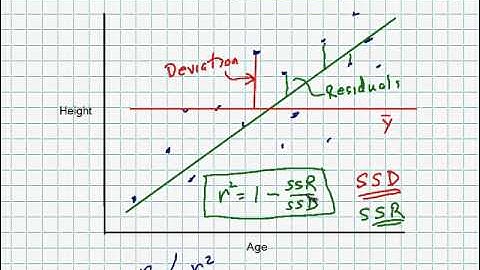 Deviation
Residuals
Height
ȳ
r² = 1 - SSR/SSD
SSD
SSR
Age
r²